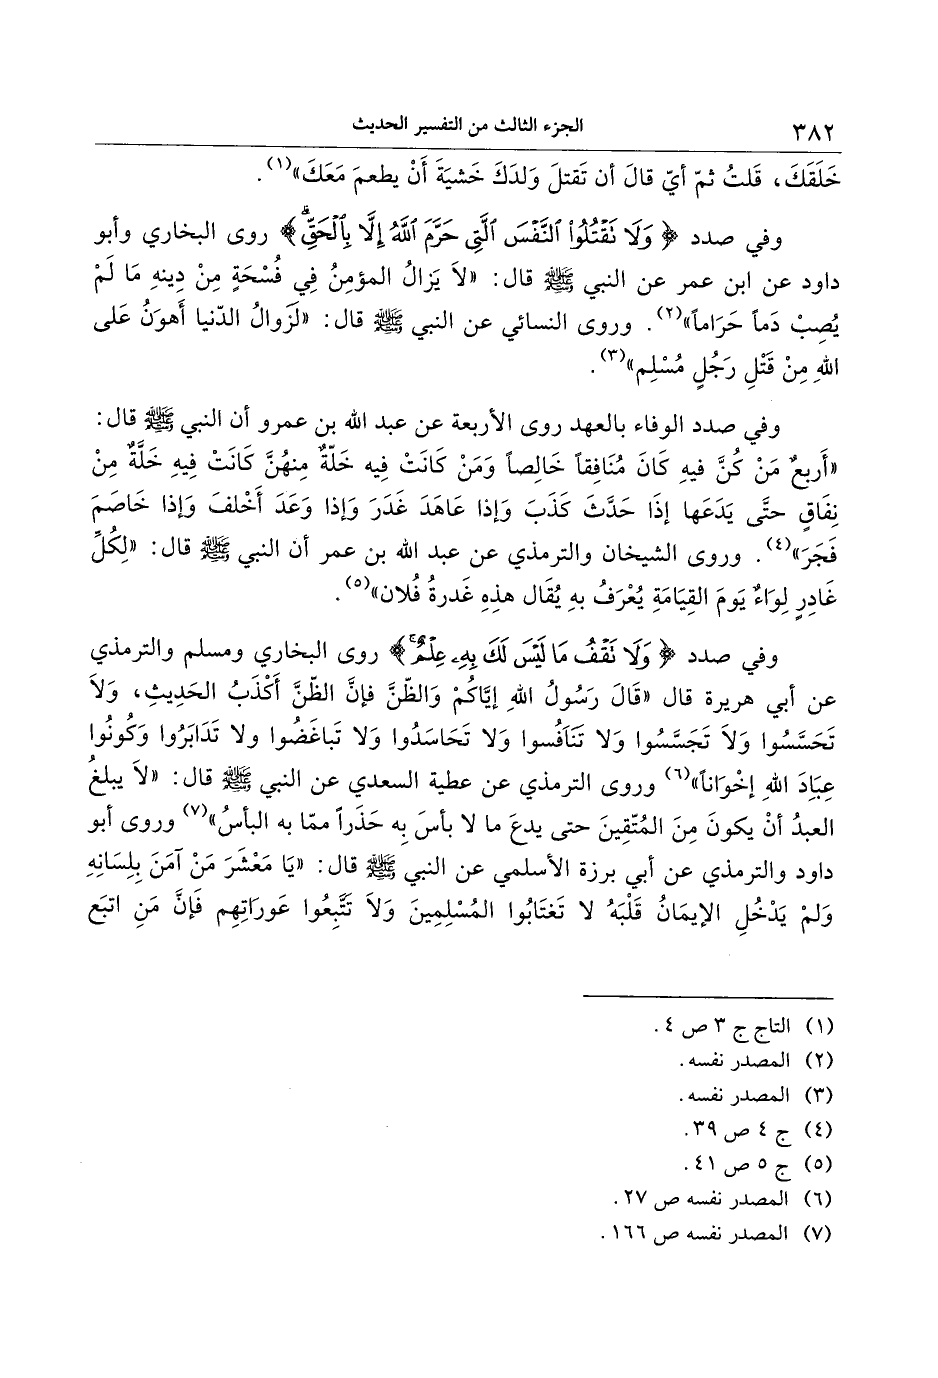 ٣٨٢ الجزء الثالث من التفسير الحديث
خَلَقَكَ، قَلتُ ثمّ أيّ قالَ أن تَقتلَ وَلدَكَ خَشيَةَ أَنْ يطعمَ مَعَكَ»(١).
وفي صدد ﴿وَلَا نَقۡتُلُواْ ٱلنَّفۡسَ ٱلَّتِي حَرَّمَ ٱللَّهُ إِلَّا بِٱلۡحَقِّۗ﴾ روى البخاري وأبو
داود عن ابن عمر عن النبي ﷺ قال: «لاَ يَزالُ المؤمنُ فِي فُسْحَةٍ مِنْ دِينهِ مَا لَمْ
يُصِبْ دَماً حَرَاماً»(٢). وروى النسائي عن النبي ﷺ قال: «لَزَوالُ الدّنيا أَهونُ عَلى
اللهِ مِنْ قَتْلِ رَجُلٍ مُسْلِم»(٣).
وفي صدد الوفاء بالعهد روى الأربعة عن عبد الله بن عمرو أن النبي ﷺ قال:
«أَربعٌ مَنْ كُنَّ فيهِ كَانَ مُنَافِقاً خَالِصاً وَمَنْ كَانَتْ فيهِ خَلّةٌ مِنهُنَّ كَانَتْ فِيهِ خَلَّةٌ مِنْ
نِفَاقٍ حتَّى يَدَعَها إذَا حَدَّثَ كَذَبَ وَإذا عَاهَدَ غَدَرَ وَإذا وَعَدَ أَخْلفَ وَإذا خَاصَمَ
فَجَرَ»(٤). وروى الشيخان والترمذي عن عبد الله بن عمر أن النبي ﷺ قال: «لِكُلِّ
غَادِرٍ لِوَاءٌ يَومَ القِيَامَةِ يُعْرَفُ بهِ يُقَال هذِهِ غَدرةُ فُلان»(٥).
وفي صدد ﴿وَلَا نَقۡفُ مَا لَيۡسَ لَكَ بِهِۦ عِلۡمٌۚ﴾ روى البخاري ومسلم والترمذي
عن أبي هريرة قال «قَالَ رَسُولُ اللهِ إيَّاكُمْ وَالظّنَّ فإنَّ الظّنَّ أَكْذَبُ الحَدِيثِ، وَلاَ
تَحَسَّسُوا وَلاَ تَجَسَّسُوا وَلا تَنَافُسوا وَلا تَحَاسَدُوا وَلا تَباغَضُوا ولا تَدَابَرُوا وَكُونُوا
عِبَادَ اللهِ إخْوَاناً»(٦) وروى الترمذي عن عطية السعدي عن النبي ﷺ قال: «لاَ يبلغُ
العبدُ أنْ يكونَ مِنَ المُتّقِينَ حتى يدعَ ما لا بأسَ بِه حَذَراً ممّا به البأسُ»(٧) وروى أبو
داود والترمذي عن أبي برزة الأسلمي عن النبي ﷺ قال: «يَا مَعْشَرَ مَنْ آمَنَ بِلِسَانِهِ
وَلمْ يَدْخُلِ الإيمَانُ قَلْبَهُ لا تَغتَابُوا المُسْلِمِينَ وَلاَ تَتَّبِعُوا عَوراتِهِم فَإنَّ مَنِ اتبَع
(١) التاج ج ٣ ص ٤.
(٢) المصدر نفسه.
(٣) المصدر نفسه.
(٤) ج ٤ ص ٣٩.
(٥) ج ٥ ص ٤١.
(٦) المصدر نفسه ص ٢٧.
(٧) المصدر نفسه ص ١٦٦.